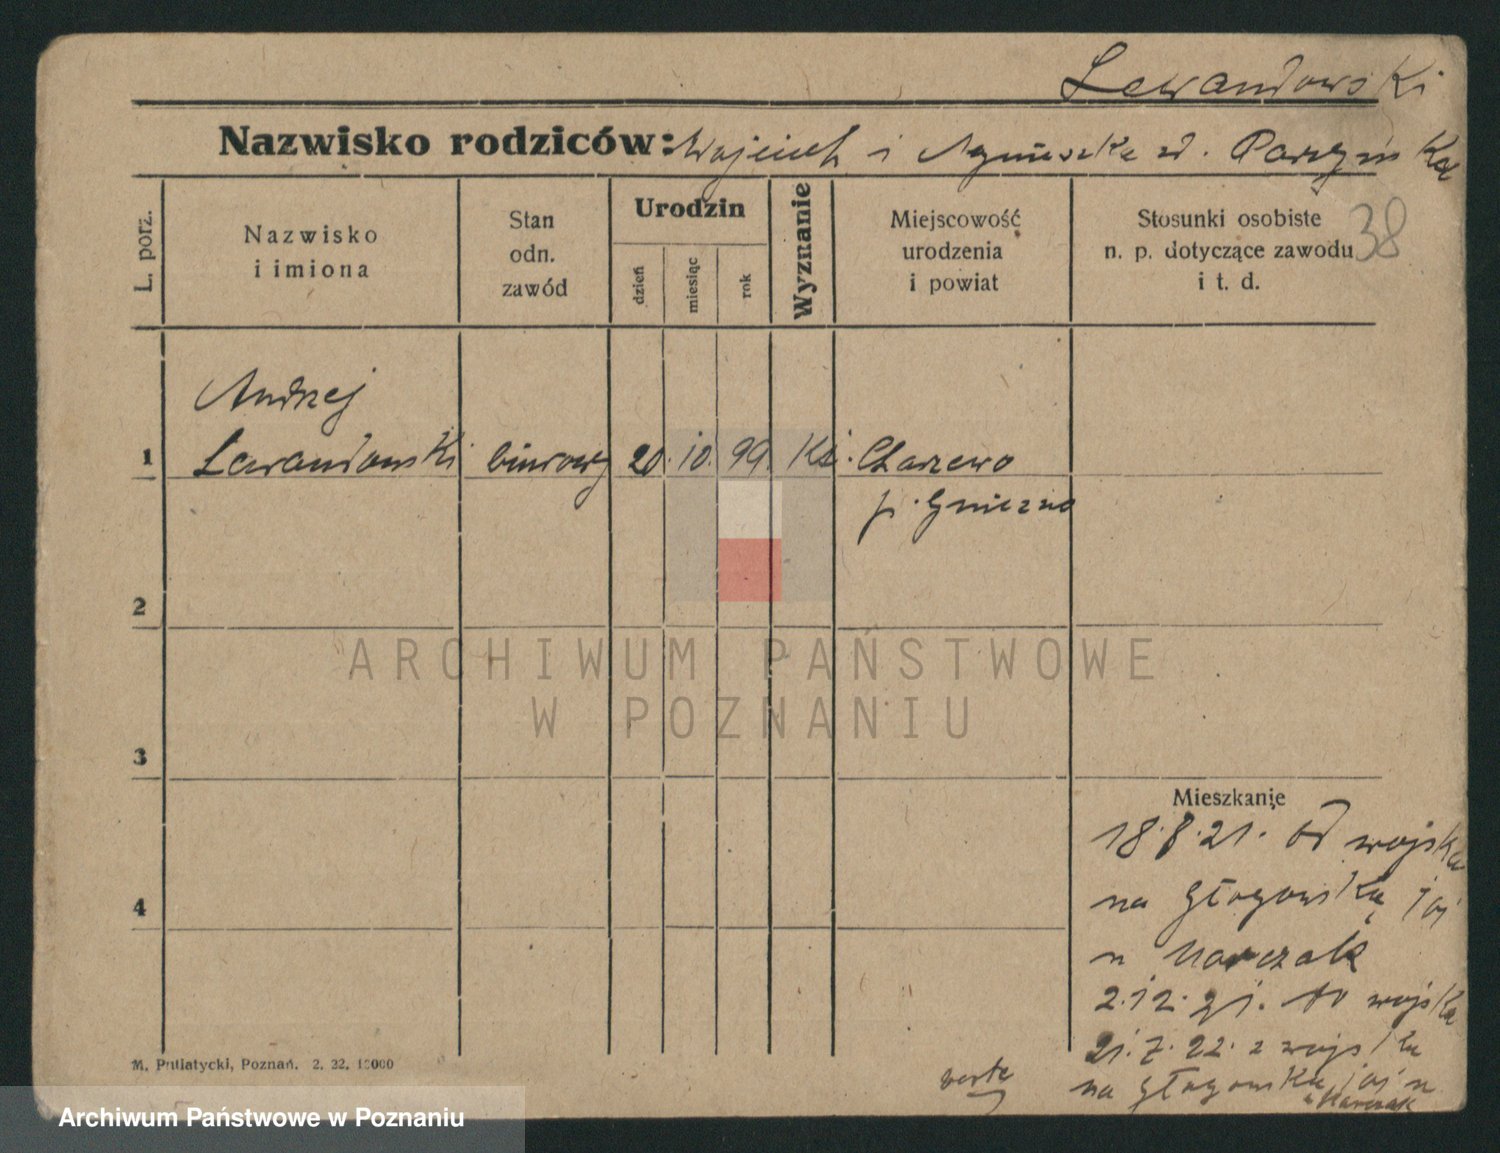 Lewandowski
Nazwisko rodziców: Wojciech i Agnieszka zd. Parzyńska
38
L. porz.
Nazwisko
i imiona
Stan
odn.
zawód
Urodzin
dzień
miesiąc
rok
Wyznanie
Miejscowość
urodzenia
i powiat
Stosunki osobiste
n. p. dotyczące zawodu
i t. d.
Andrzej
1 Lewandowski biurowy 20. 10. 99. Kt. Charzewo
p. Gniezno
2
ARCHIWUM PAŃSTWOWE
W POZNANIU
3
Mieszkanie
18.8.21. od wojska
na Głogowską 101
u Marczak
4
2.12.21. do wojska
21.7.22. z wojska
na Głogowską 101 u
Marczak
verte
M. Putiatycki, Poznań. 2. 32. 10000
Archiwum Państwowe w Poznaniu